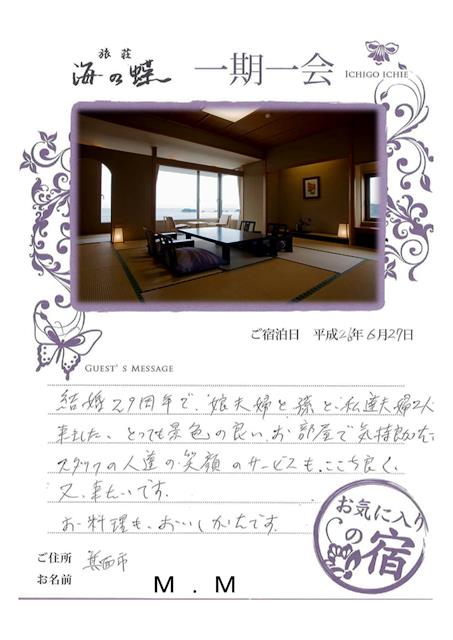 旅荘
海の蝶
一期一会
ICHIGO ICHIE
ご宿泊日 平成26年6月27日
GUEST'S MESSAGE
結婚29周年で、娘夫婦と孫と、私達夫婦2人
来ました、とっても景色の良い、お部屋で気持良かった
スタッフの人達の笑顔のサービスも、ここち良く、
又、来たいです。
お料理も、おいしかったです
お気に入り
の宿
ご住所 箕面市
お名前 M.M